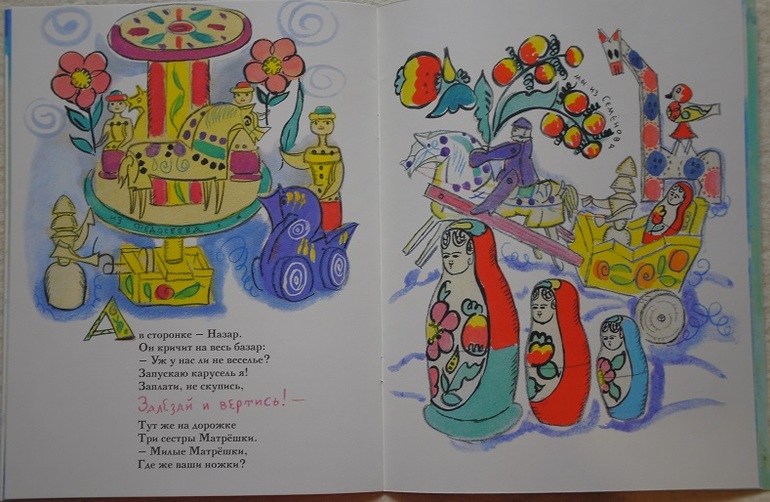 ИЗ ФЕДОСЕЕВА
А в сторонке — Назар.
Он кричит на весь базар:
— Уж у нас ли не веселье?
Запускаю карусель я!
Заплати, не скупись,
Залезай и вертись! —
Тут же на дорожке
Три сестры Матрёшки.
— Милые Матрёшки,
Где же ваши ножки?
МЫ ИЗ СЕМЁНОВА